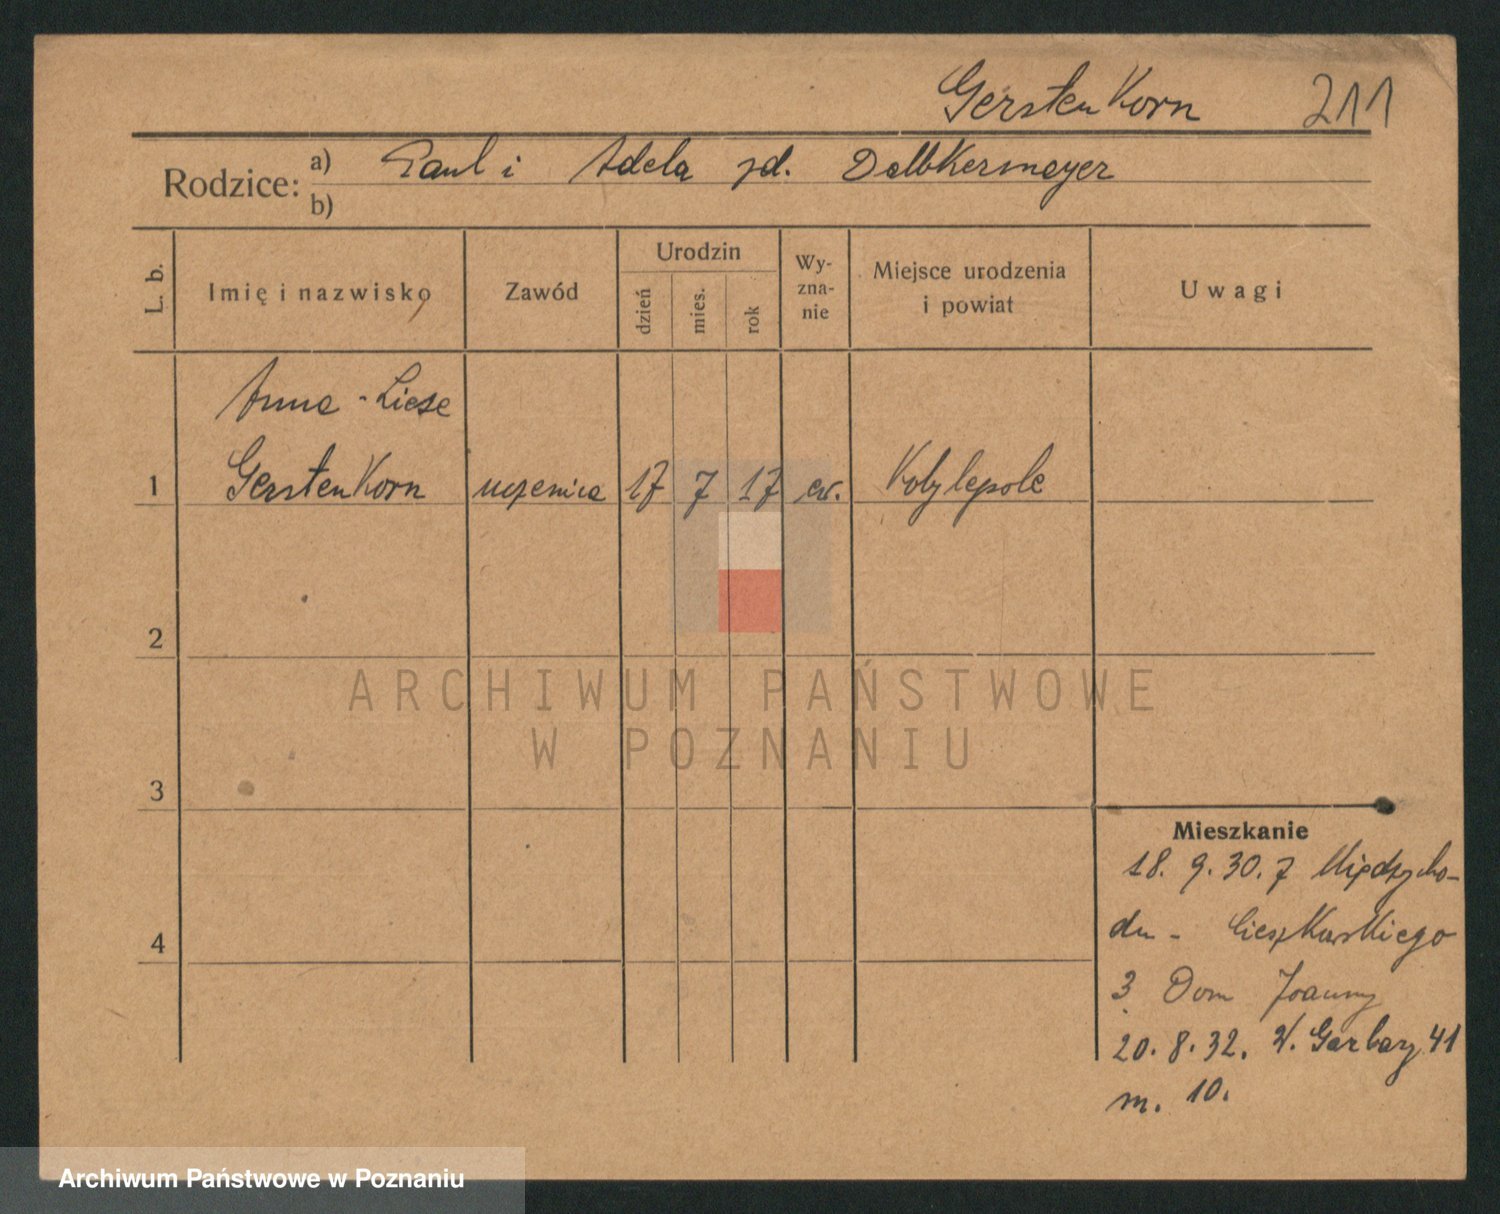 GerstenKorn 211
Rodzice: a) Paul i Adela zd. DelbKermeyer
b)
L. b. Imię i nazwisko Zawód Urodzin dzień mies. rok Wy-zna-nie Miejsce urodzenia i powiat Uwagi
Anna - Liese
1 GerstenKorn uczenica 17 7 17 ew. Kobylepole
2
3
4
Mieszkanie
18. 9. 30. z Międzycho-
du - CieszKowsKiego
3 Dom Joanny
20. 8. 32. W. Garbary 41
m. 10.
ARCHIWUM PAŃSTWOWE
W POZNANIU
Archiwum Państwowe w Poznaniu